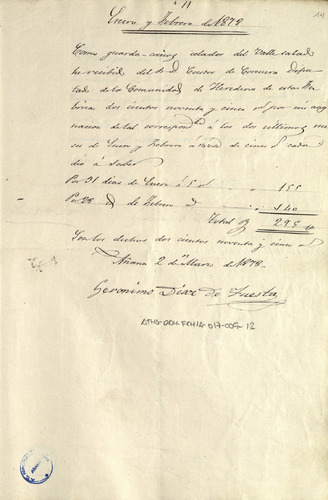 11
14
Enero y Febrero de 1878
Como guarda celador del Valle salado
he recibido del Sr D. Castor de Corcuera Depu-
tado de la Comunidad de Herederos de estas
dos cientos noventa y cinco por mi asig
nacion de tal correspond. á los dos ultimos me
ses de Enero y Febrero a razon de cinco cada
dia á saber
Por 31 dias de Enero á 5 155
Por 28 d de Febrero 140
Total 295
Son los dichos dos cientos noventa y cinco
Añana 2 de Marzo de 1878
Geronimo Diaz de Tuesta
ATHA-DAH-FCHIA-017-009-12